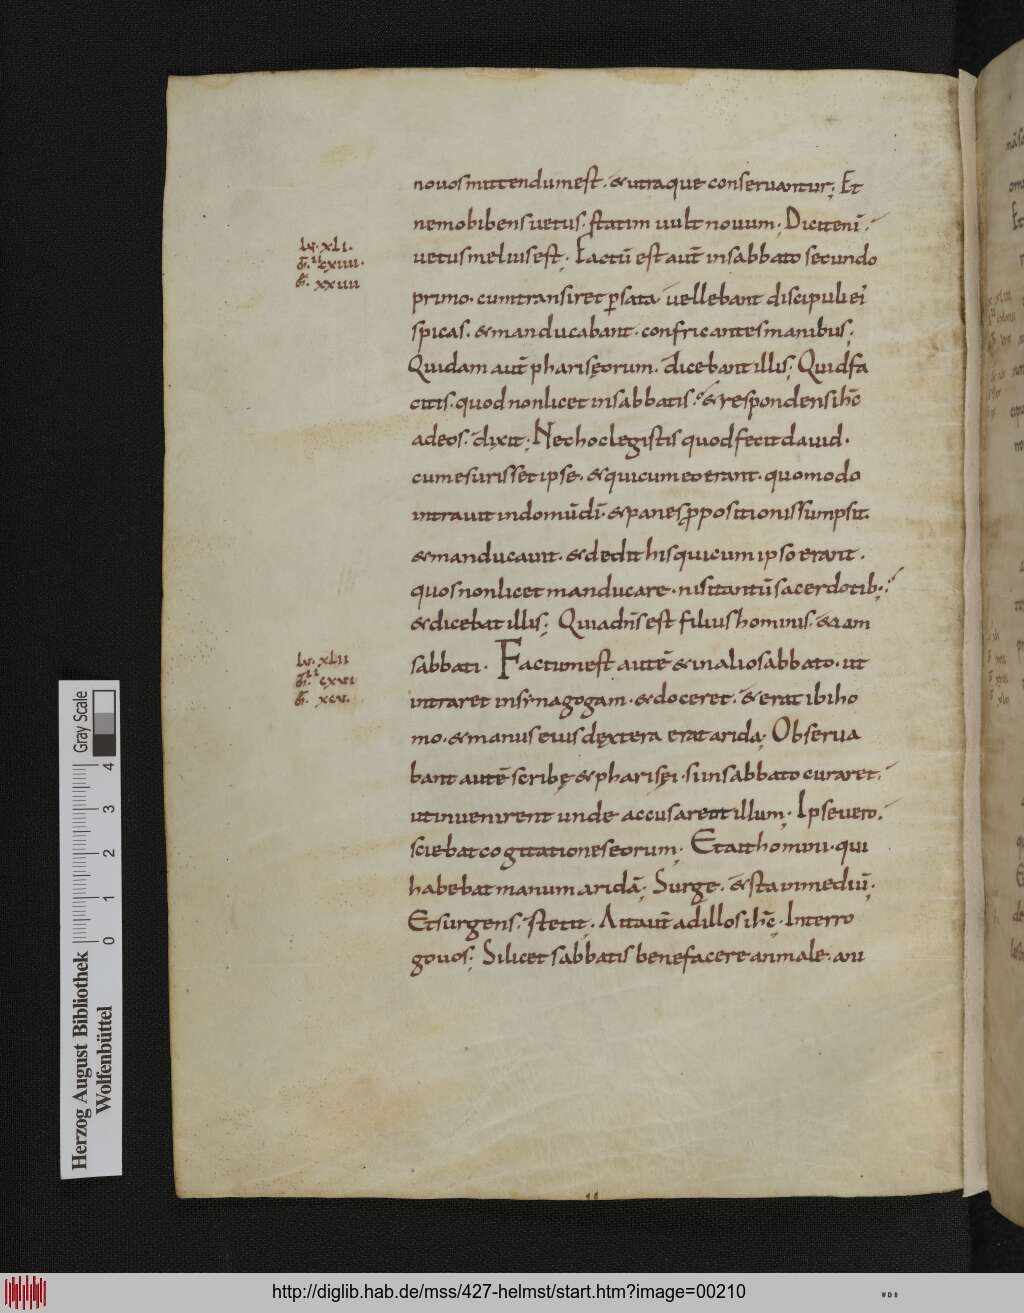 novos mittendum est. & utraque conservantur; Et
nemo bibens vetus. statim vult novum; Dicit enī.
lu. xli.
m̄. ii cxiiii.
m̄. xxiiii
vetus melius est. Factū est aut̄ in sabbato secundo
primo. cum transiret p sata. vellebant discipuli ei'
spicas. & manducabant. confricantes manibus;
Quidam aut̄ pharisęorum. dicebant illis; Quid fa
citis. quod non licet in sabbatis. & respondens ihc̄
ad eos. dixit; Nec hoc legistis quod fecit david.
cum esurisset ipse. & qui cum eo erant. quomodo
intravit in domū dī. & panes ppositionis sumpsit.
& manducavit. & dedit his qui cum ipso erant.
quos non licet manducare. nisi tantū sacerdotib;
& dicebat illis; Quia dn̄s est filius hominis. &iam
lu. xlii
m̄. ii cxvi
m̄. xxv.
sabbati. Factum est autē & in alio sabbato. ut
intraret in synagogam. & doceret. & erat ibi ho
mo. & manus eius dextera erat arida; Observa
bant autē scribę & pharisęi. si in sabbato curaret.
ut invenirent unde accusarent illum; Ipse vero.
sciebat cogitationes eorum; Et ait homini. qui
habebat manum aridā; Surge. & sta in mediū;
Et surgens. stetit; Ait aut̄ ad illos ihc̄; Interro
go vos; Si licet sabbatis bene facere animale. an
Gray Scale
0 1 2 3 4
Herzog August Bibliothek
Wolfenbüttel
http://diglib.hab.de/mss/427-helmst/start.htm?image=00210